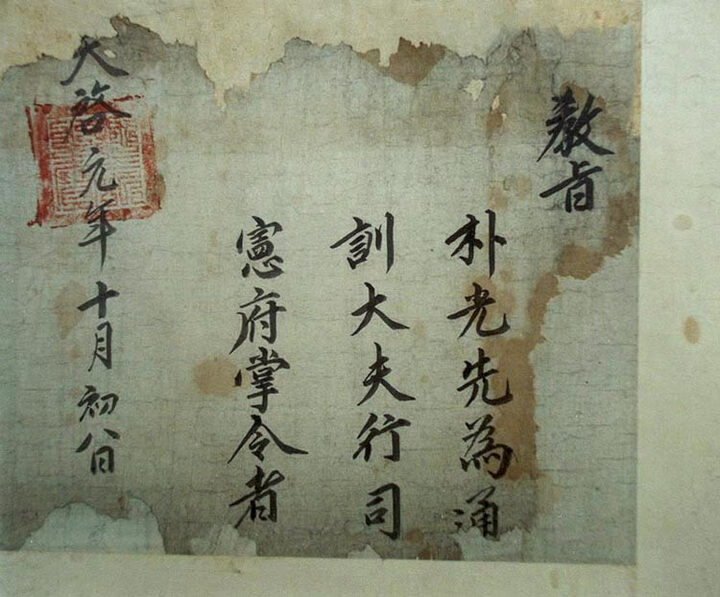 敎旨
朴光先為通
訓大夫行司
憲府掌令者
天啓元年十月初八日